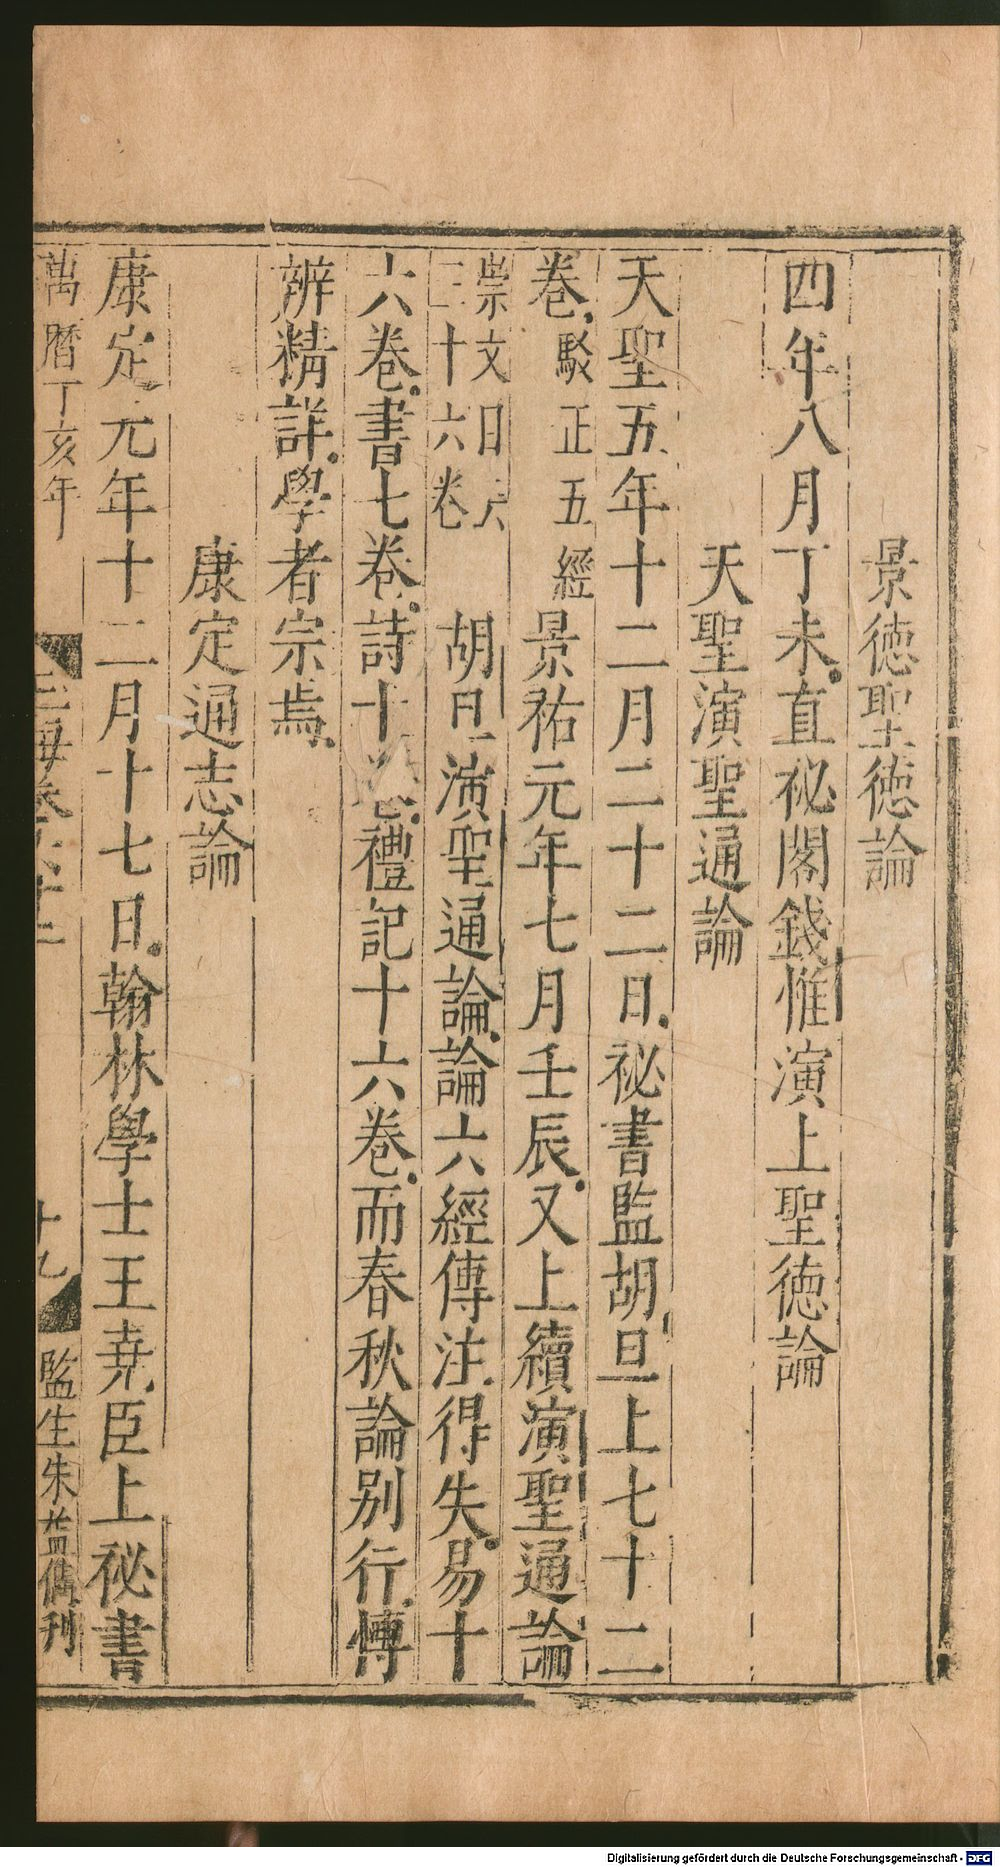 景徳聖徳論
四年八月丁未直祕閣錢惟演上聖徳論
天聖演聖通論
天聖五年十二月二十二日祕書監胡旦上七十二
卷駁正五經景祐元年七月壬辰又上續演聖通論
崇文目六
三十六卷
胡旦演聖通論論六經傳注得失易十
六卷書七卷詩十卷禮記十六卷而春秋論别行慱
辨精詳學者宗焉
康定通志論
康定元年十二月十七日翰林學士王堯臣上祕書
萬曆丁亥年
玉海卷六十二
十九
監生朱益儁刊
Digitalisierung gefördert durch die Deutsche Forschungsgemeinschaft - DFG